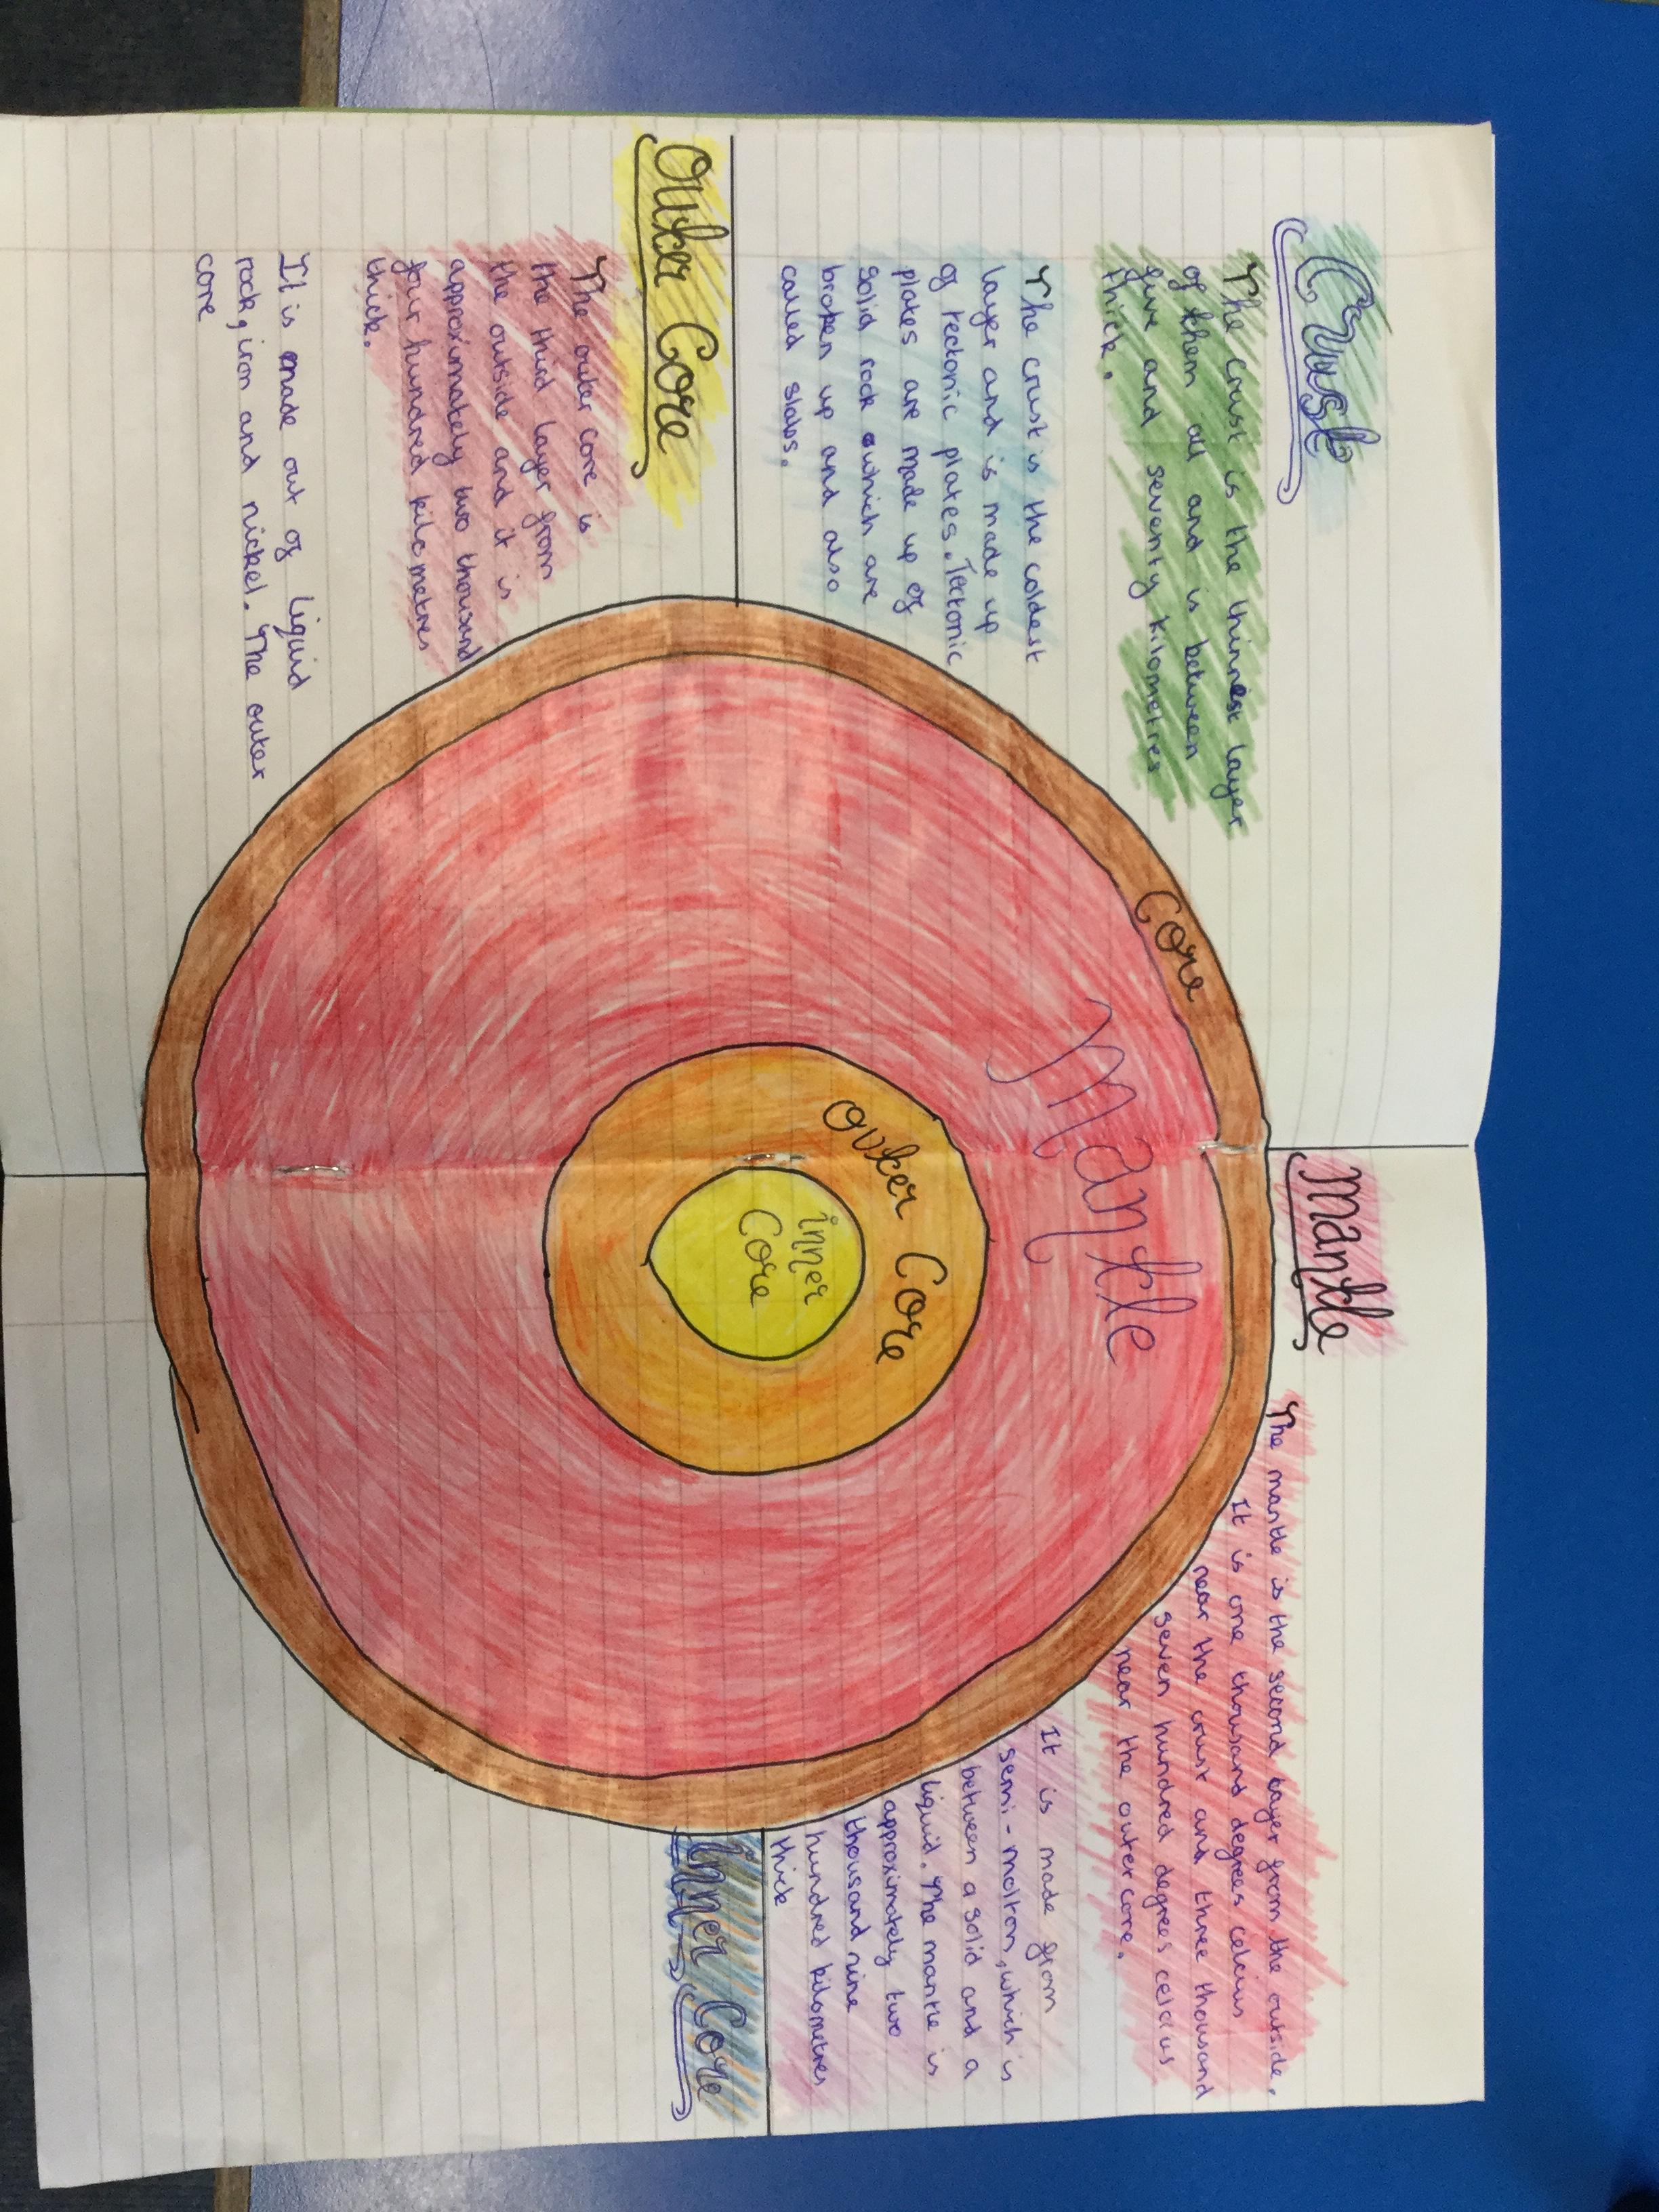 Crust
The crust is the thinnest layer
of them all and is between
five and seventy kilometres
thick.
The crust is the coldest
layer and is made up
of tectonic plates. Tectonic
plates are made up of
solid rock which are
broken up and also
called slabs.
Mantle
The mantle is the second layer from the outside.
It is one thousand degrees celcius
near the crust and three thousand
seven hundred degrees celcius
near the outer core.
It is made from
semi-molton, which is
between a solid and a
liquid. The mantle is
approximately two
thousand nine
hundred kilometres
thick
Core
Mantle
Outer Core
inner
Core
Outer Core
The outer core is
the third layer from
the outside and it is
approximately two thousand
four hundred kilometres
thick.
It is made out of liquid
rock, iron and nickel. The outer
core
inner Core